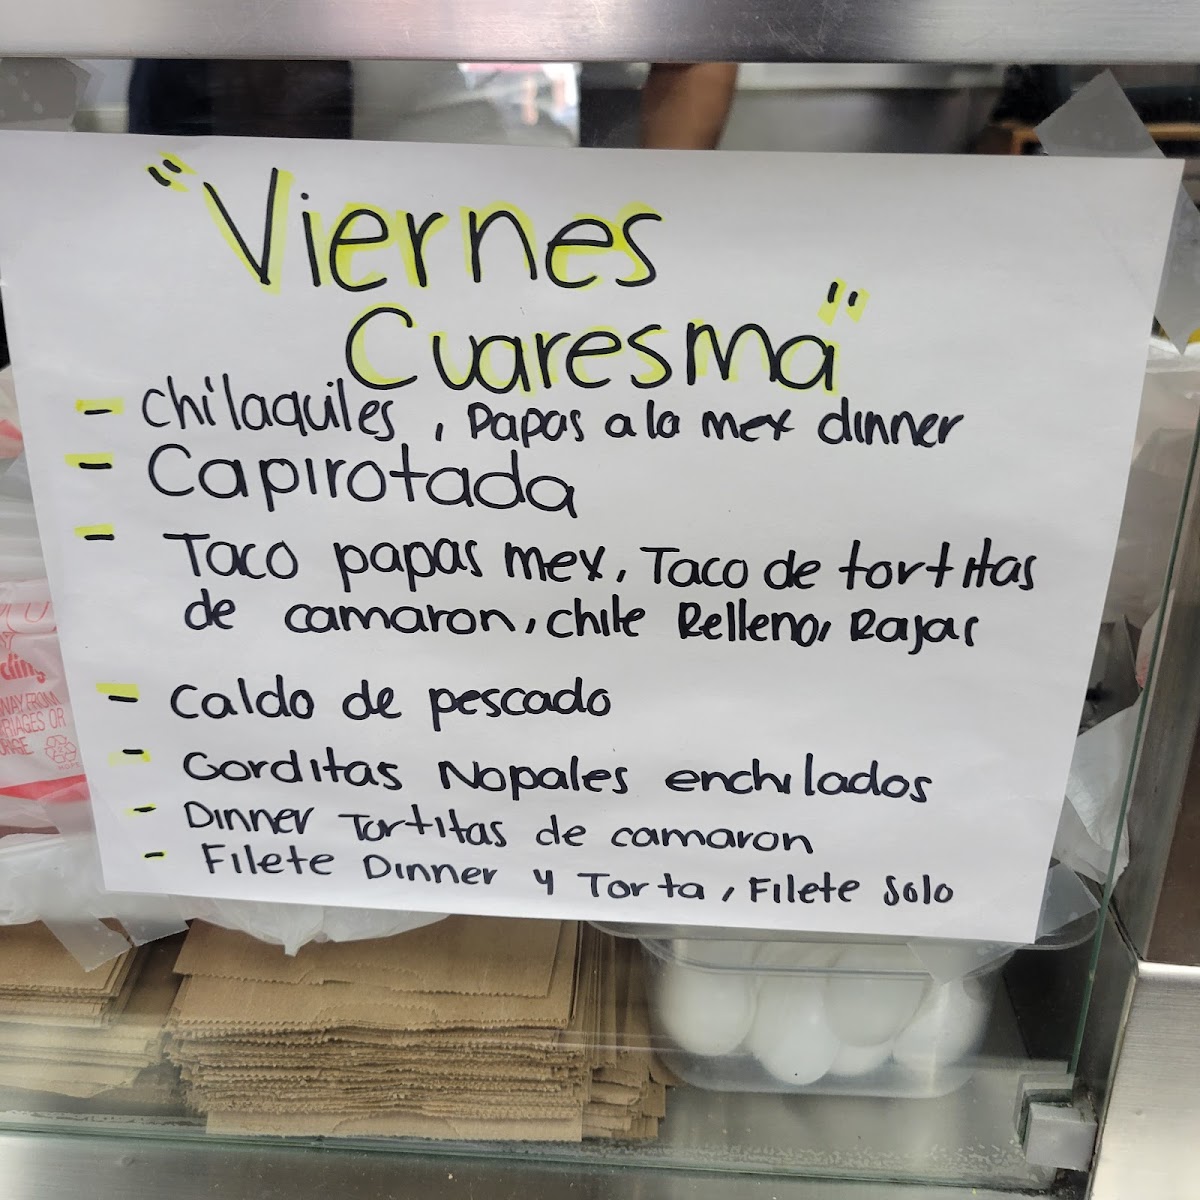 "Viernes
Cuaresma"
- Chilaquiles, Papas a la mex dinner
- Capirotada
- Taco papas mex, Taco de tortitas
de camaron, chile Relleno, Rajas
- Caldo de pescado
- Gorditas Nopales enchilados
- Dinner Tortitas de camaron
- Filete Dinner y Torta, Filete Solo